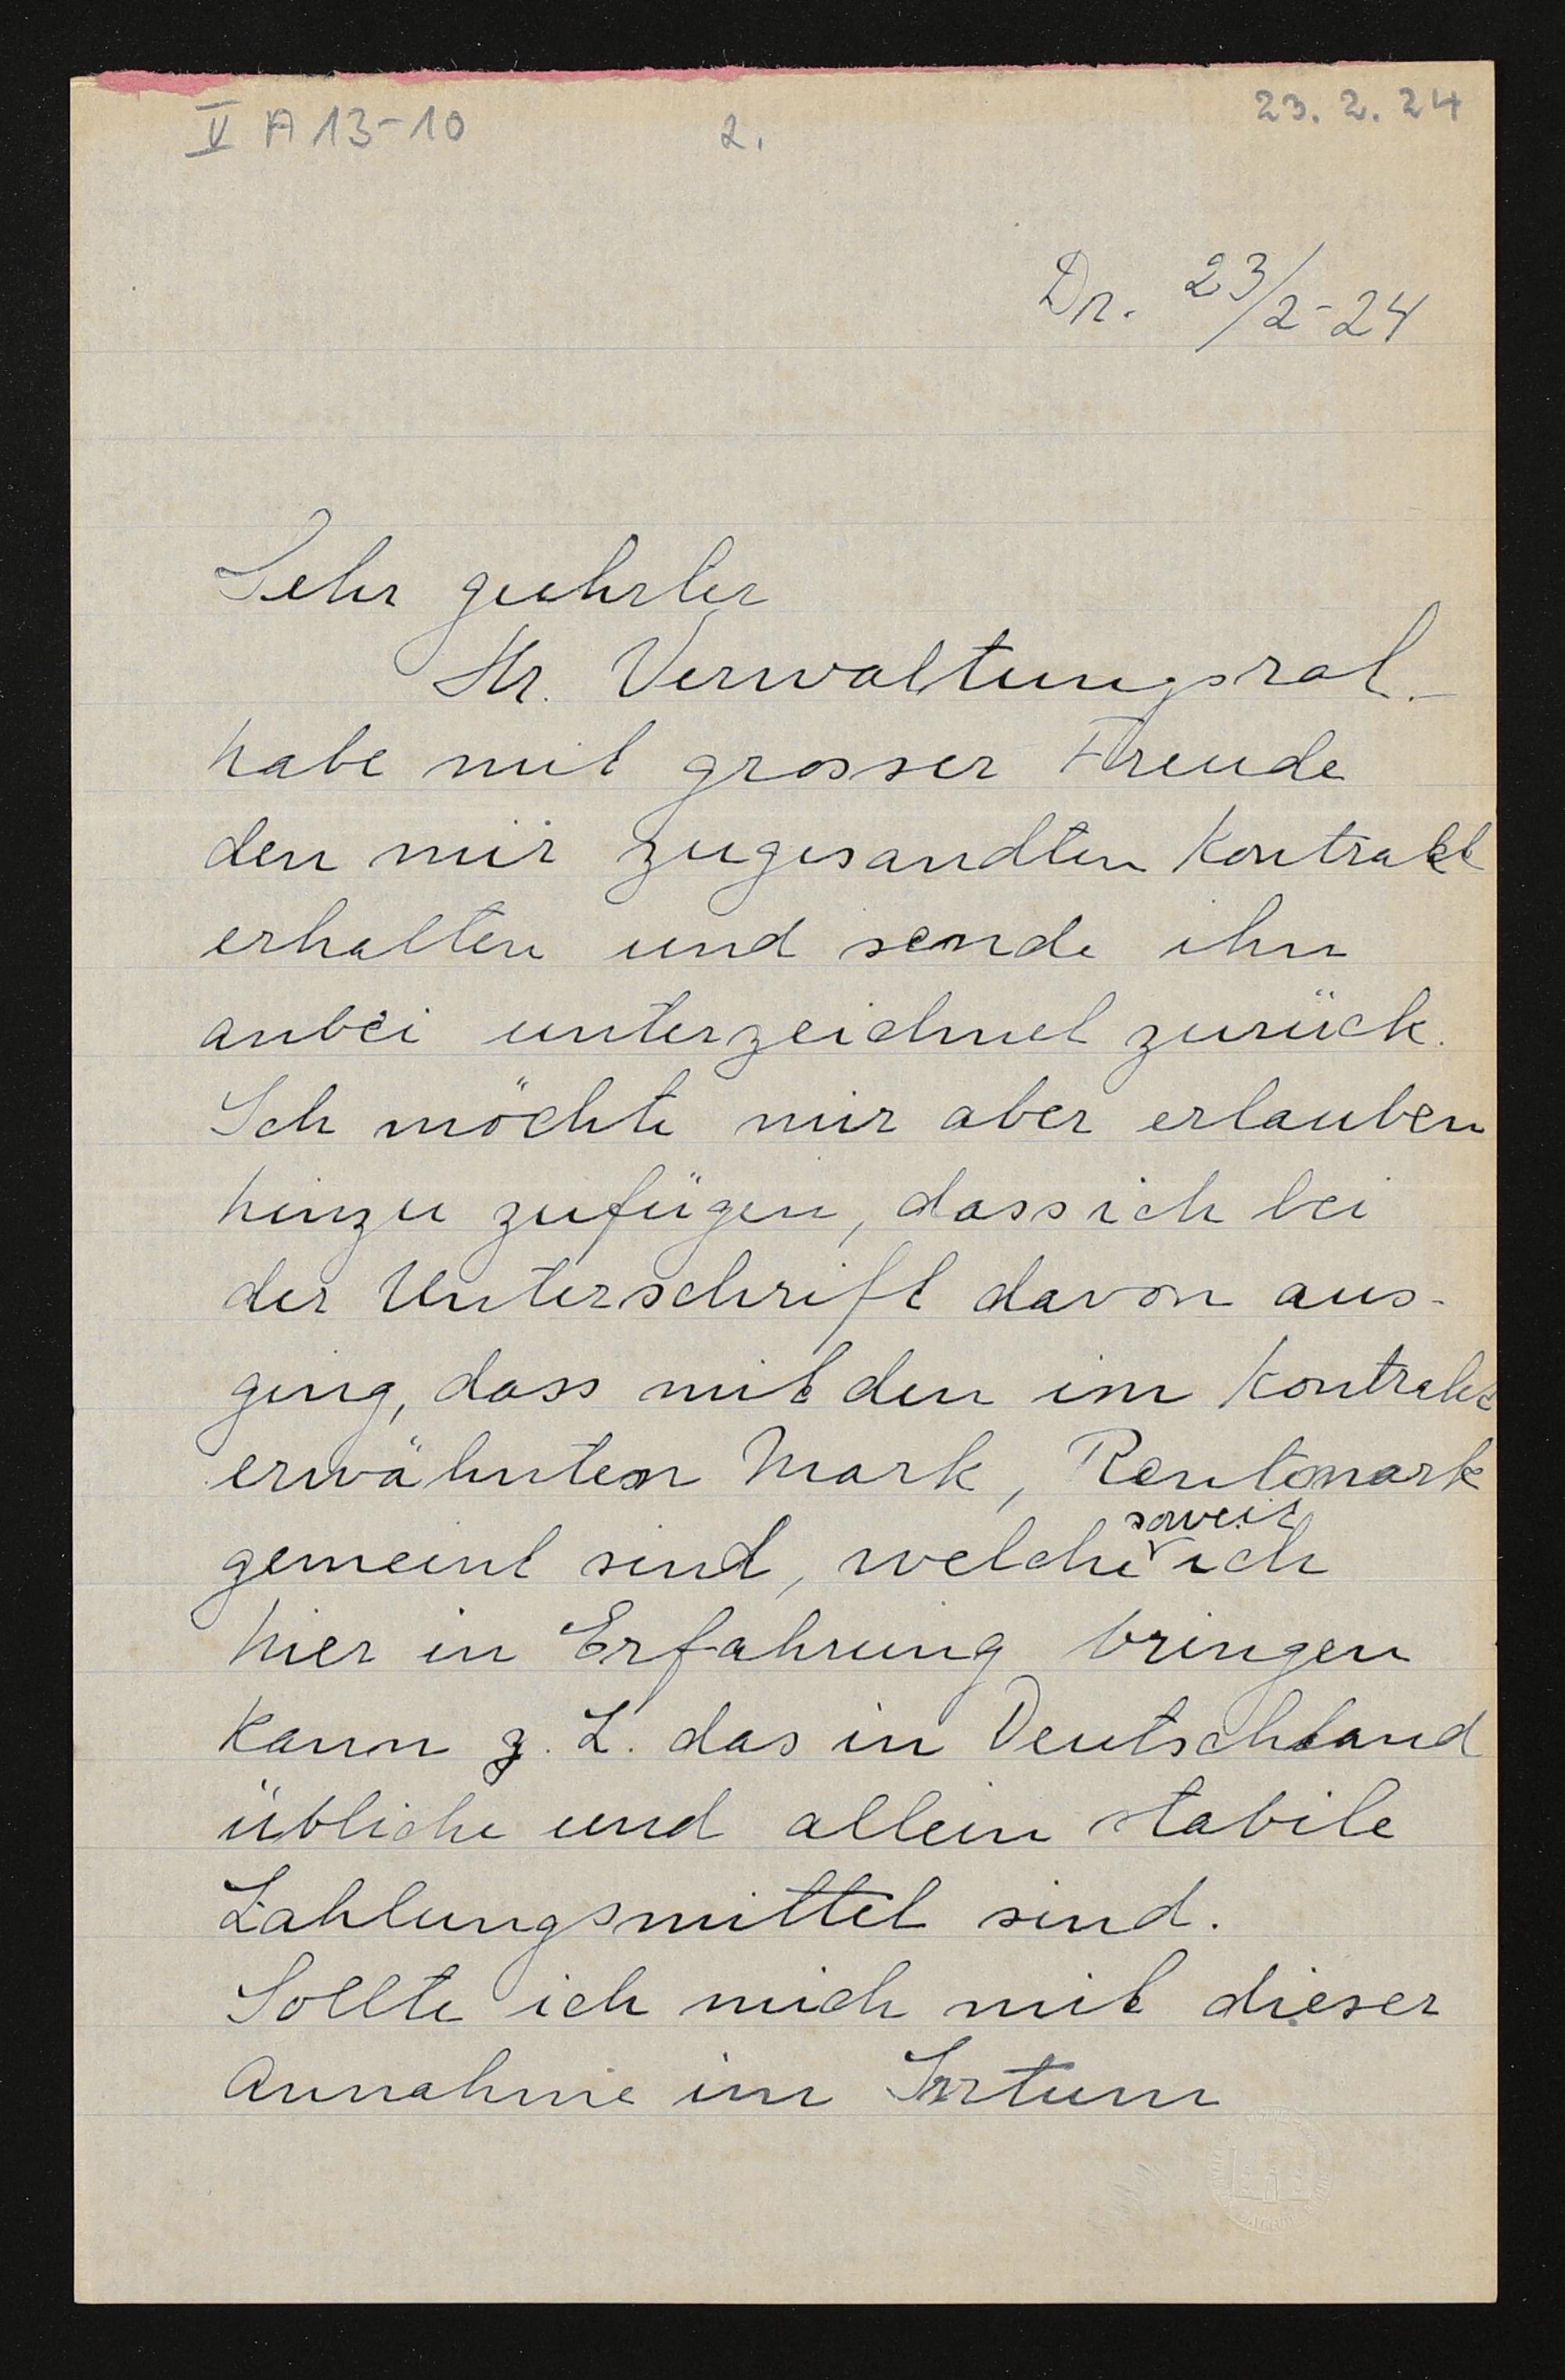 V A 13-10 2. 23.2.24
Dr. 23/2-24
Sehr geehrter
Hr. Verwaltungsrat.-
habe mit grosser Freude
den mir zugesandten Kontrakt
erhalten und sende ihn
anbei unterzeichnet zurück.
Ich möchte mir aber erlauben
hinzu zufügen, dass ich bei
der Unterschrift davon aus-
ging, dass mit den im Kontrakt
erwähnten Mark, Rentenmark
gemeint sind, welche soweit ich
hier in Erfahrung bringen
kann z. Z. das in Deutschland
übliche und allein stabile
Zahlungsmittel sind.
Sollte ich mich mit dieser
Annahme im Irrtum